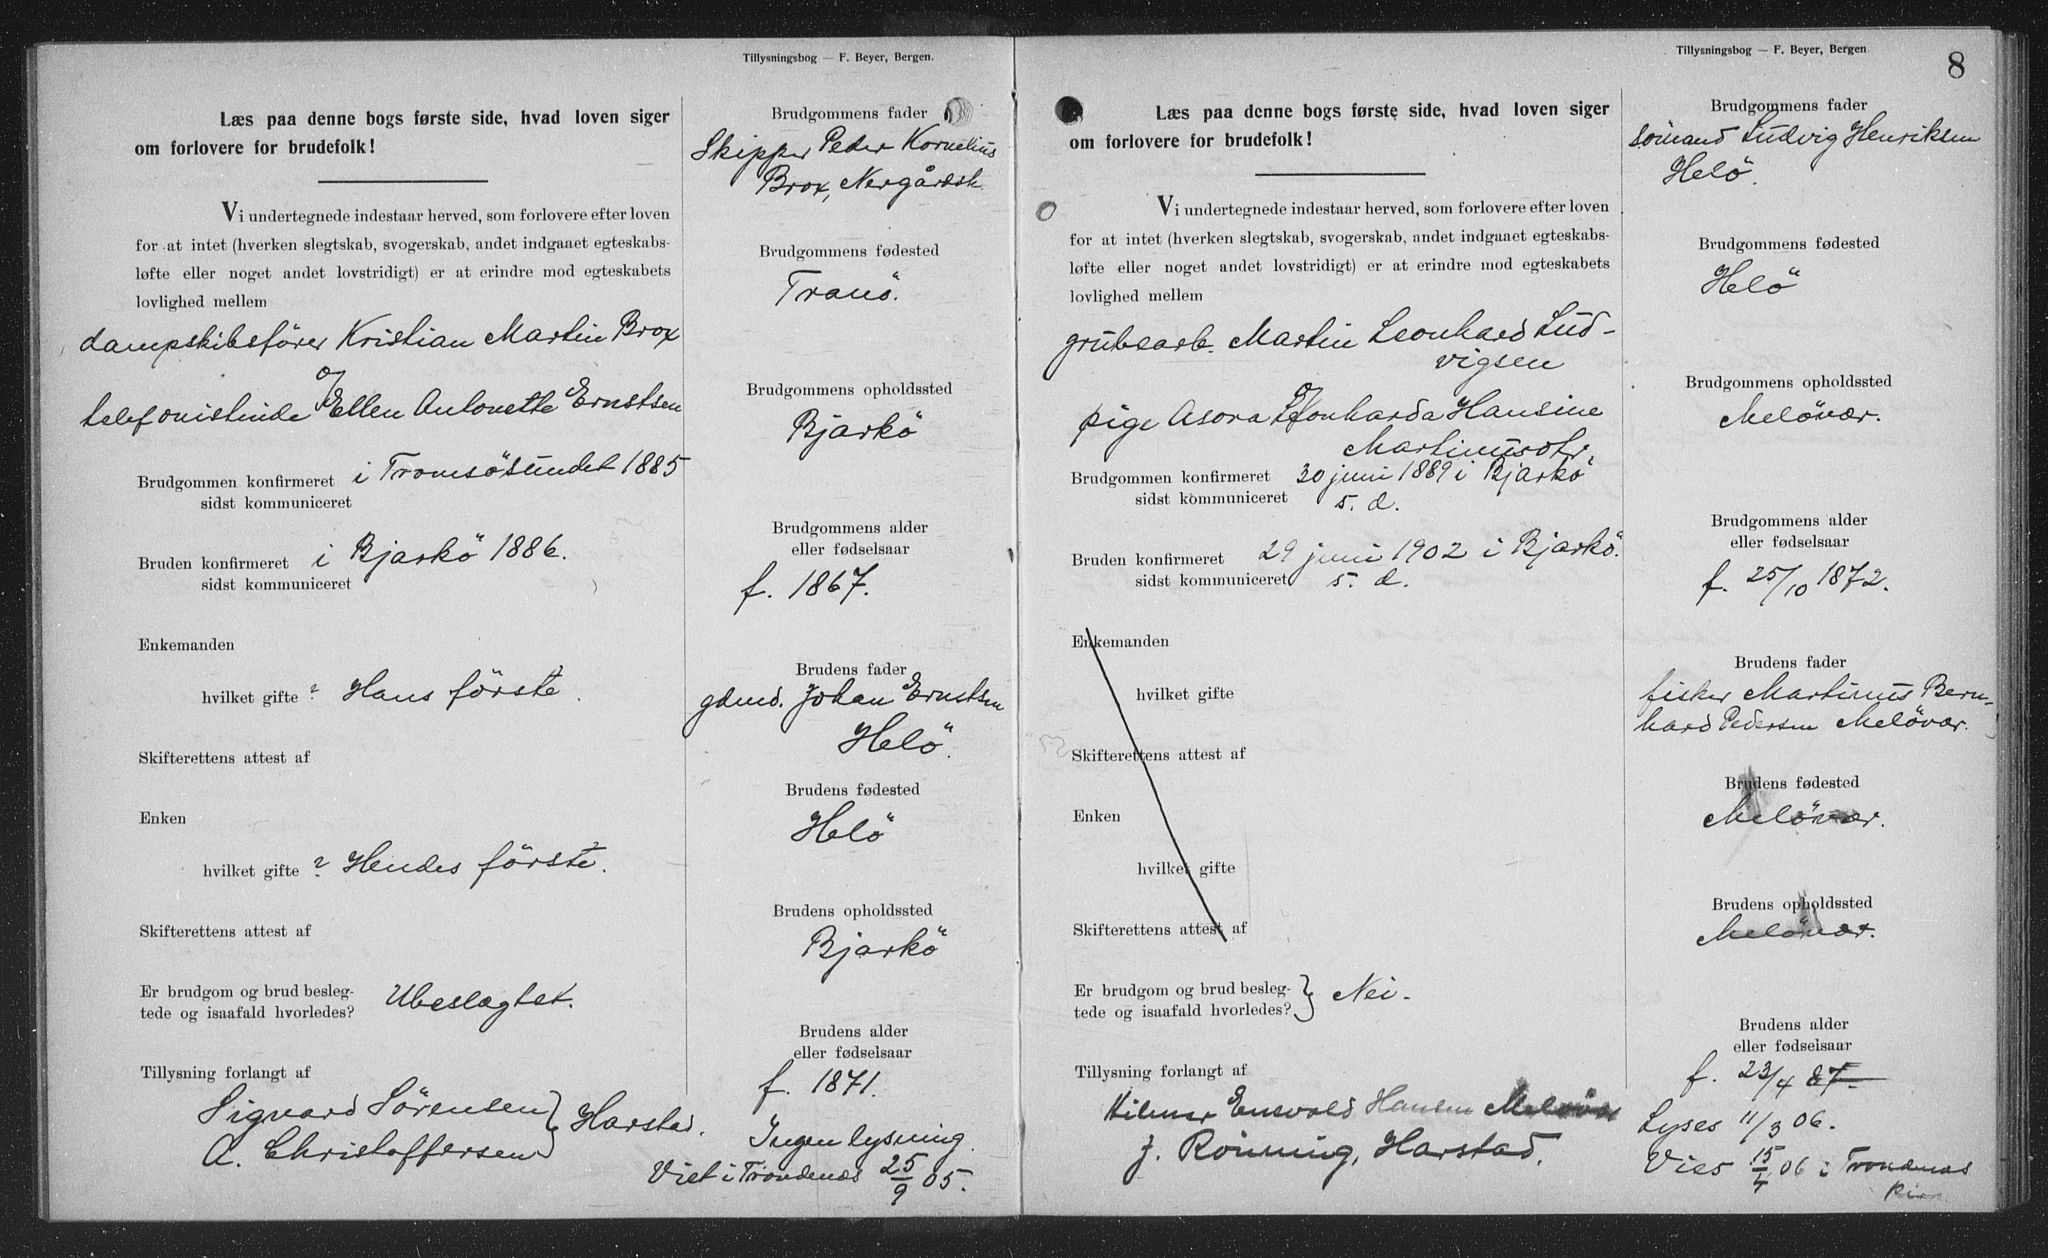 Tillysningsbog — F. Beyer, Bergen.
Læs paa denne bogs første side, hvad loven siger
om forlovere for brudefolk!
Vi undertegnede indestaar herved, som forlovere efter loven
for at intet (hverken slegtskab, svogerskab, andet indgaaet egteskabs-
løfte eller noget andet lovstridigt) er at erindre mod egteskabets
lovlighed mellem
dampskibsfører Kristian Martin Brox
og
telefonistinde Ellen Antonette Ernstsen
Brudgommen konfirmeret i Tromsösundet 1885
sidst kommuniceret
Bruden konfirmeret i Bjarkö 1886.
sidst kommuniceret
Enkemanden
hvilket gifte? Hans förste.
Skifterettens attest af
Enken
hvilket gifte? Hendes förste.
Skifterettens attest af
Er brudgom og brud besleg-
tede og isaafald hvorledes? Ubeslægtet.
Tillysning forlangt af
Sigvard Sörensen } Harstad.
A. Christoffersen
Brudgommens fader
Skipper Peder Kornelius
Brox, Nergårdsh.
Brudgommens fødested
Tranö.
Brudgommens opholdssted
Bjarkö
Brudgommens alder
eller fødselsaar
f. 1867.
Brudens fader
gdmd. Johan Ernstsen
Helö.
Brudens fødested
Helö
Brudens opholdssted
Bjarkö
Brudens alder
eller fødselsaar
f. 1871.
Ingen lysning.
Viet i Trondenæs 25/9 05.
Tillysningsbog — F. Beyer, Bergen
8
Læs paa denne bogs første side, hvad loven siger
om forlovere for brudefolk!
Vi undertegnede indestaar herved, som forlovere efter loven
for at intet (hverken slegtskab, svogerskab, andet indgaaet egteskabs-
løfte eller noget andet lovstridigt) er at erindre mod egteskabets
lovlighed mellem
grubearb. Martin Leonhard Lud-
vigsen
og
pige Asora Leonharda Hansine
Martinusdtr.
Brudgommen konfirmeret 30 juni 1889 i Bjarkö
sidst kommuniceret s. d.
Bruden konfirmeret 29 juni 1902 i Bjarkö.
sidst kommuniceret s. d.
Enkemanden
hvilket gifte
Skifterettens attest af
Enken
hvilket gifte
Skifterettens attest af
Er brudgom og brud besleg-
tede og isaafald hvorledes? } Nei.
Tillysning forlangt af
Hilmar Hansen Melövær
J. Rönning, Harstad.
Brudgommens fader
sömand Ludvig Henriksen
Helö.
Brudgommens fødested
Helö
Brudgommens opholdssted
Melövær.
Brudgommens alder
eller fødselsaar
f. 25/10 1872.
Brudens fader
fisker Martinus Bern-
hard Pedersen Melövær.
Brudens fødested
Melövær.
Brudens opholdssted
Melövær.
Brudens alder
eller fødselsaar
f. 23/4 87
Lyses 11/3 06.
Vies 15/4 06 i Trondenæs